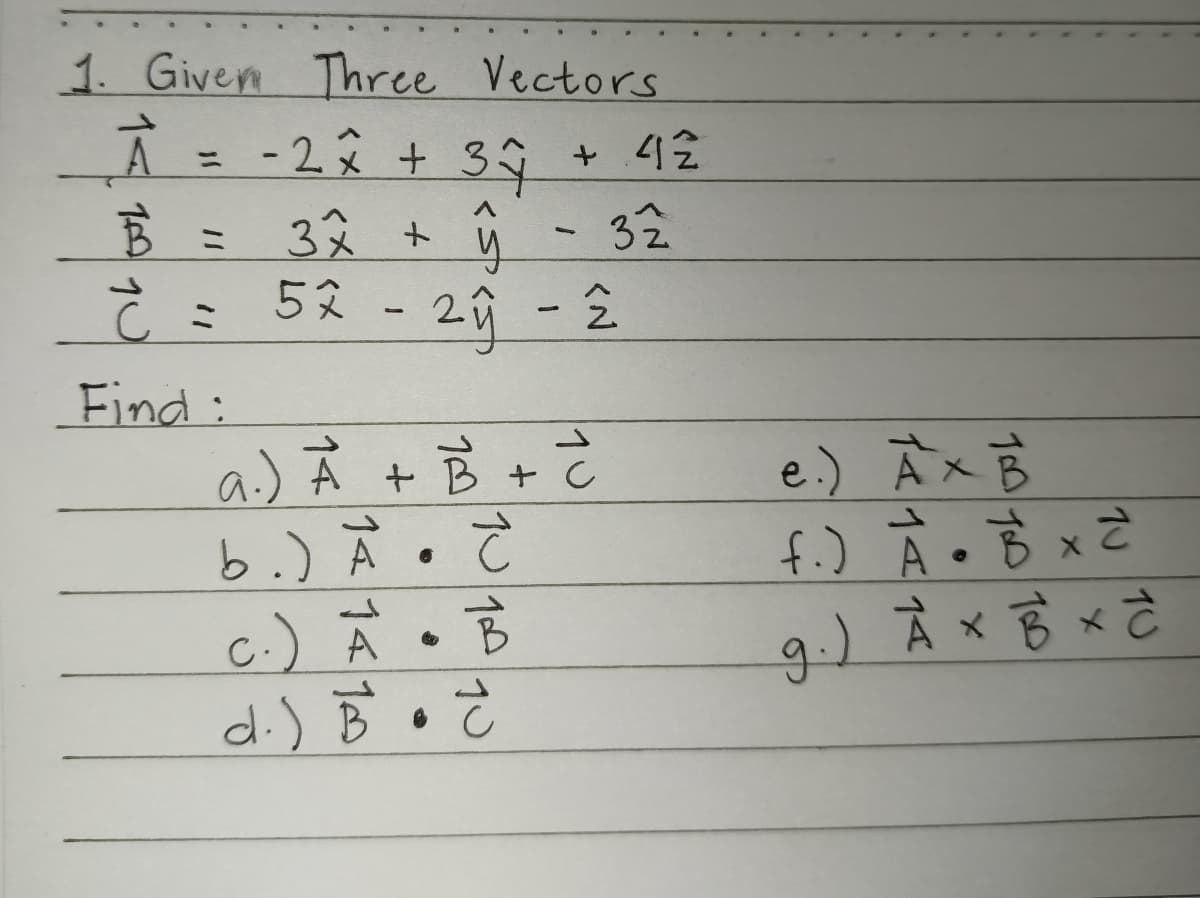 1. Given Three Vectors
A⃗ = -2x̂ + 3ŷ + 4ẑ
B⃗ = 3x̂ + ŷ - 3ẑ
C⃗ = 5x̂ - 2ŷ - ẑ
Find :
a.) A⃗ + B⃗ + C⃗
b.) A⃗ • C⃗
c.) A⃗ • B⃗
d.) B⃗ • C⃗
e.) A⃗ × B⃗
f.) A⃗ • B⃗ × C⃗
g.) A⃗ × B⃗ × C⃗